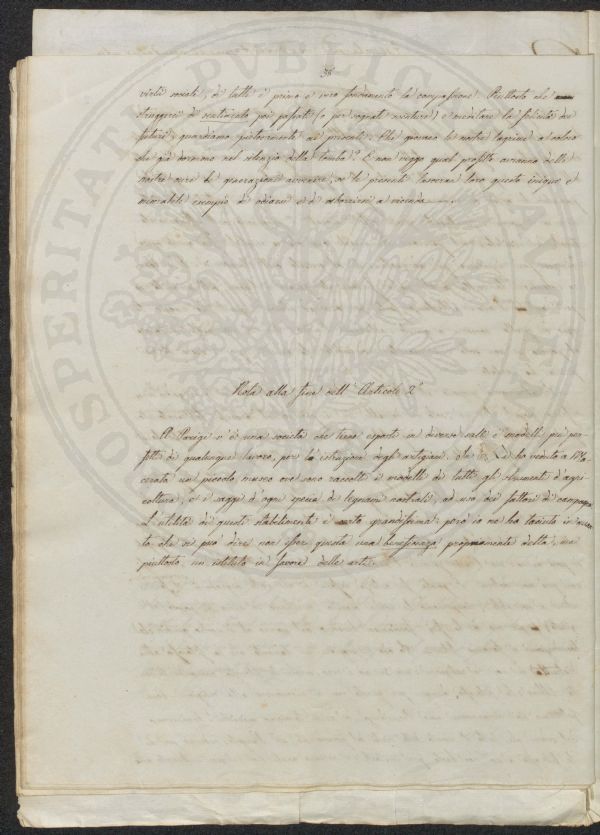 36
virtù sociali, di tutte è prima e vero fondamento la compassione. Piuttosto che
struggersi di sentimento poi passati (o per sognate sventure) e inventare la felicità dei
futuri, guardiamo pietosamente ai presenti. Che giovano le nostre lagrime a coloro
che già dormono nel silenzio della tomba? E non veggo qual profitto avranno delle
nostre cure le generazioni avvenire, se le presenti lasceran loro questo indegno e
miserabile esempio di odiarsi e di aborrirsi a vicenda
Nota alla fine dell'Articolo 2°
A Parigi v'è una società che tiene esposti in diverse salle i modelli più per-
fetti di qualunque lavoro, per la istruzione degli artigiani. Io ho veduto a Ma-
cerata un piccolo museo ove sono raccolti i modelli di tutti gli strumenti d'agri-
coltura, ed i saggi d'ogni specie di legnami nostrali, ad uso dei fattori di campagna
L'utilità di questi stabilimenti è certo grandissima: però io ne ho taciuto in quan-
to che si può dirsi non esser questa una beneficenza propriamente detta, ma
piuttosto un istituto in favore delle arti.
PROSPERITATI PUBLICAE AUGENDAE